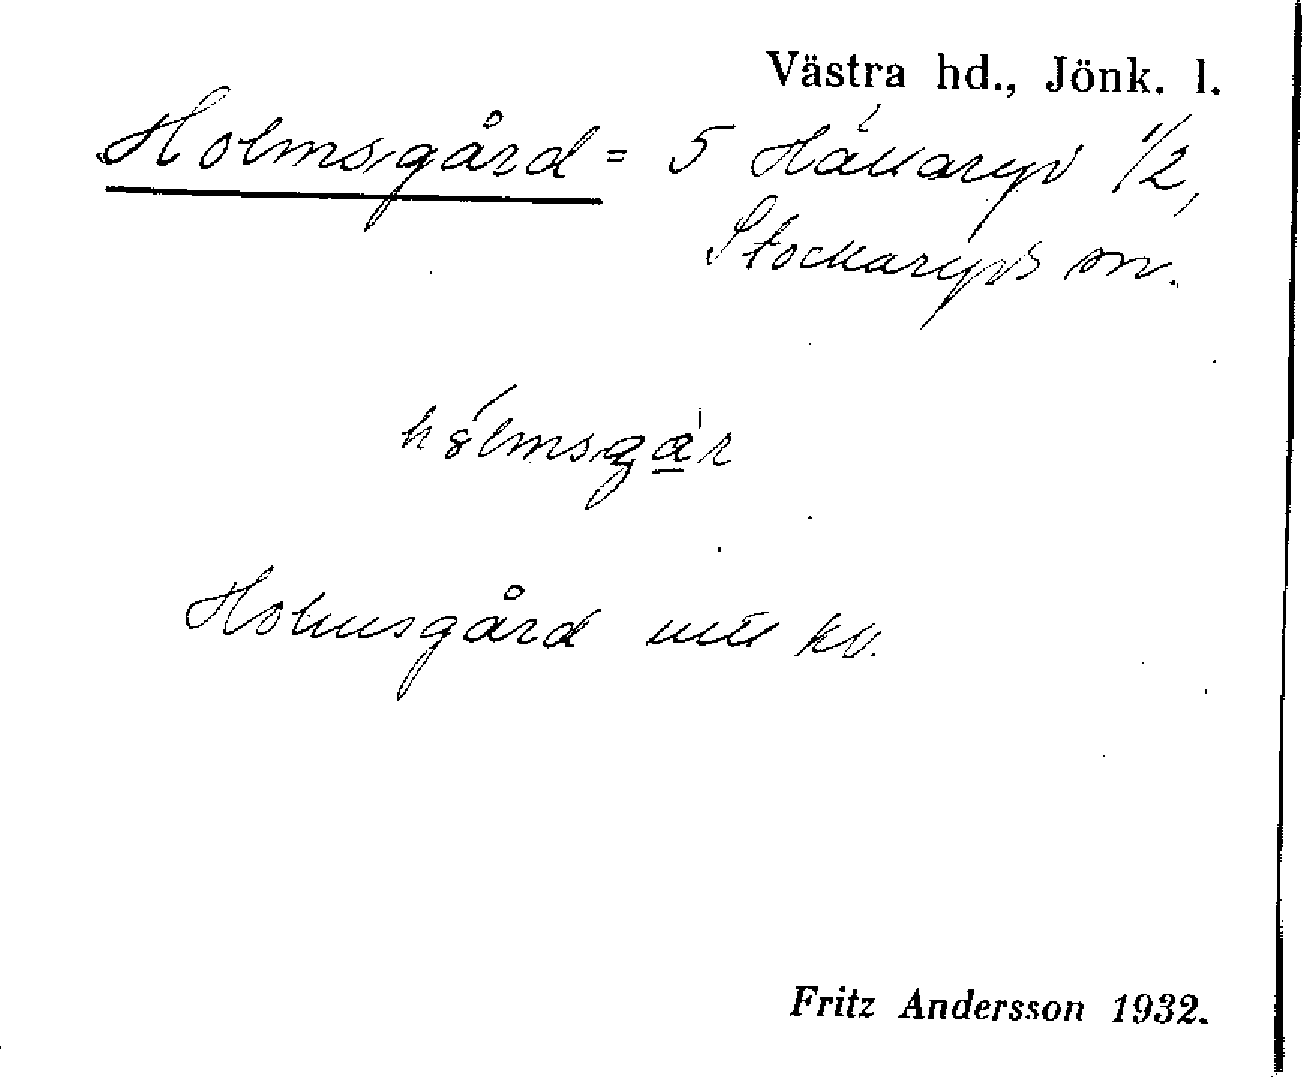 Västra hd., Jönk. l.
Holmsgård = 5 Hákaryd 1/2,
Stockaryds sn.
Holmsgård utt kv.
Fritz Andersson 1932.